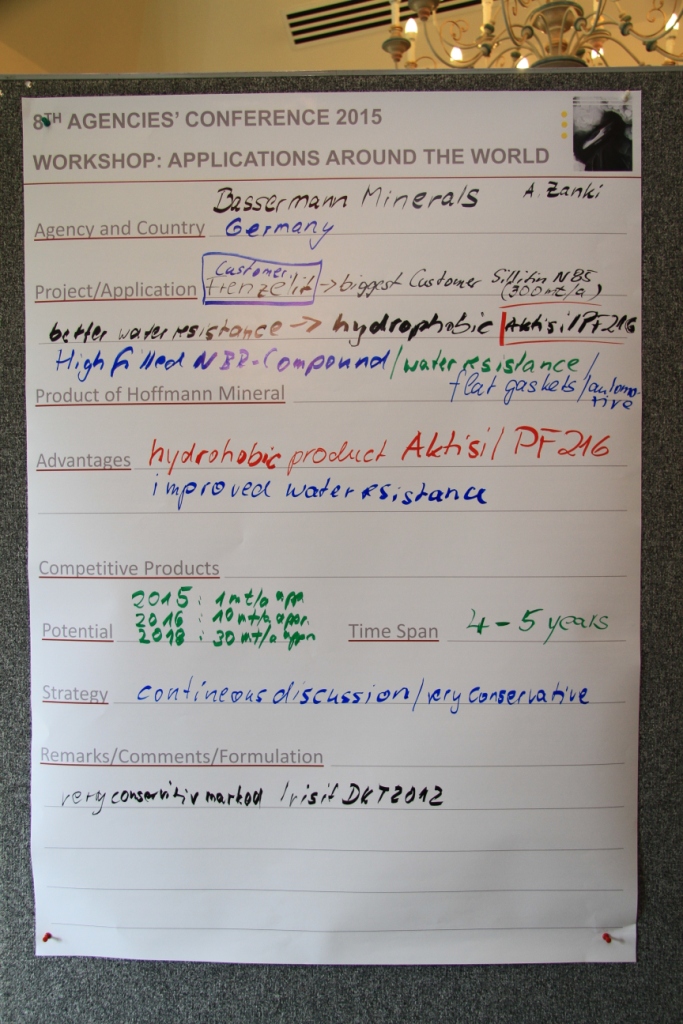 8TH AGENCIES' CONFERENCE 2015
WORKSHOP: APPLICATIONS AROUND THE WORLD
Bassermann Minerals A. Zanki
Agency and Country Germany
Customer
Project/Application frenzelit -> biggest Customer Sillitin N85
(300mt/a)
better water resistance -> hydrophobic | Aktisil PF216
High filled NBR-Compound / water resistance /
flat gaskets / automo-
tive
Product of Hoffmann Mineral
Advantages hydrohobic product Aktisil PF216
improved water resistance
Competitive Products
2015 : 1mt/a app.
2016 : 10mt/a appr.
Potential 2018 : 30mt/a appr. Time Span 4-5 years
Strategy contineous discussion / very conservative
Remarks/Comments/Formulation
very conservitiv marked / visit DKT2012